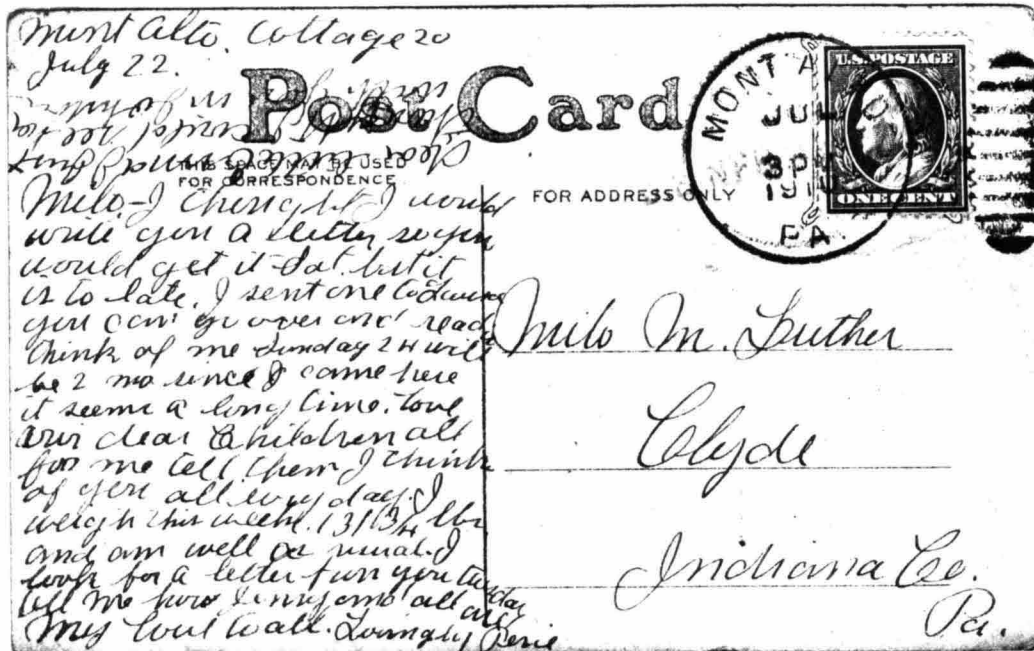 Mont Alto. Cottage 20
July 22.
Post Card
THIS SPACE MAY BE USED
FOR CORRESPONDENCE
FOR ADDRESS ONLY
MONT A
JUL
3 PM
191
PA.
U.S. POSTAGE
ONE CENT
Milo- I thought I would
write you a letter so you
would get it Sat. but it
is to late. I sent one to
you can go over and read
think of me Sunday 24 will
be 2 mo since I came here
it seems a long time. love
our dear Children all
for me tell them I think
of you all every day. I
weigh this week. 131 3/4 lbs
and am well as usual. I
look for a letter from you today
tell me how and all are
My love to all. Lovingly
Milo M. Luther
Clyde
Indiana Co.
Pa.